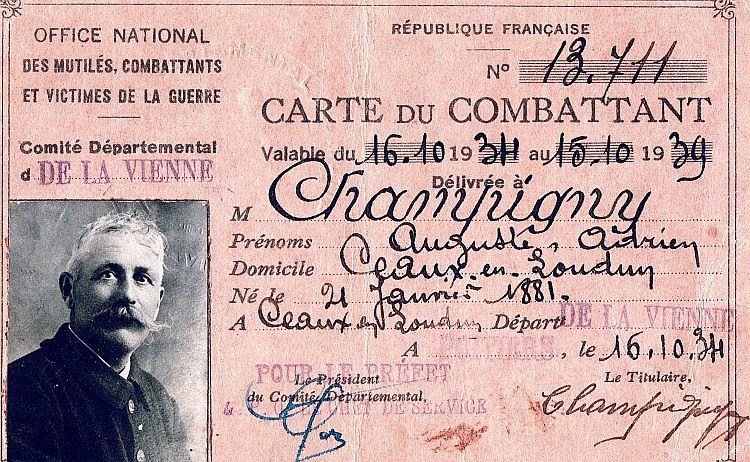 OFFICE NATIONAL
DES MUTILÉS, COMBATTANTS
ET VICTIMES DE LA GUERRE
Comité Départemental
d DE LA VIENNE
RÉPUBLIQUE FRANÇAISE
N° 13.711
CARTE DU COMBATTANT
Valable du 16.10 1934 au 15.10 1939
Délivrée à
M Champigny
Prénoms Auguste, Adrien
Domicile Ceaux-en-Loudun
Né le 21 Janvier 1881.
A Ceaux en Loudun Départ DE LA VIENNE
A POITIERS, le 16.10.34
POUR LE PRÉFET
Le Président
du Comité Départemental,
CHEF DE SERVICE
Le Titulaire,
Champigny